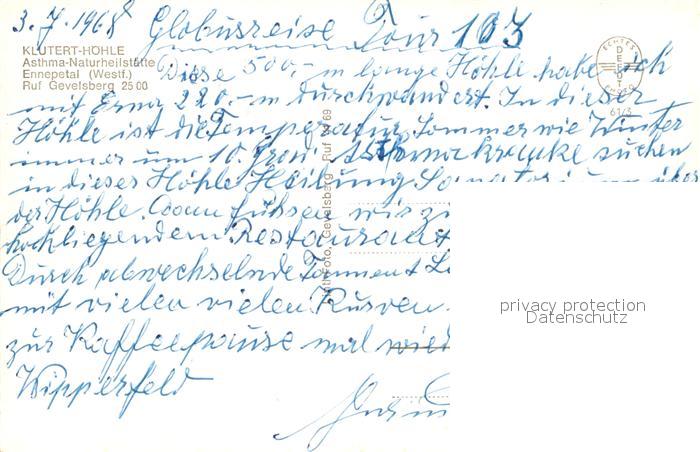 3.7.1968 Globusreise Tour 103
KLUTERT-HÖHLE
Asthma-Naturheilstätte
Ennepetal (Westf.)
Ruf Gevelsberg 25 00
ECHTES
DEFOT
Diese 500,- m lange Höhle habe ich
mit Erna 220,- m durchwandert. In dieser
Höhle ist die Temperatur Sommer wie Winter
immer um 10 Grad. Asthmakranke suchen
in dieser Höhle Heilung. Sanatorium über
der Höhle. Dann fuhren wir zu
hochliegendem Restaurant
Durch abwechselnde Tannen &
mit vielen vielen Kurven.
zur Kaffeepause mal wied
Wipperfeld
Gevelsberg Ruf
privacy protection
Datenschutz